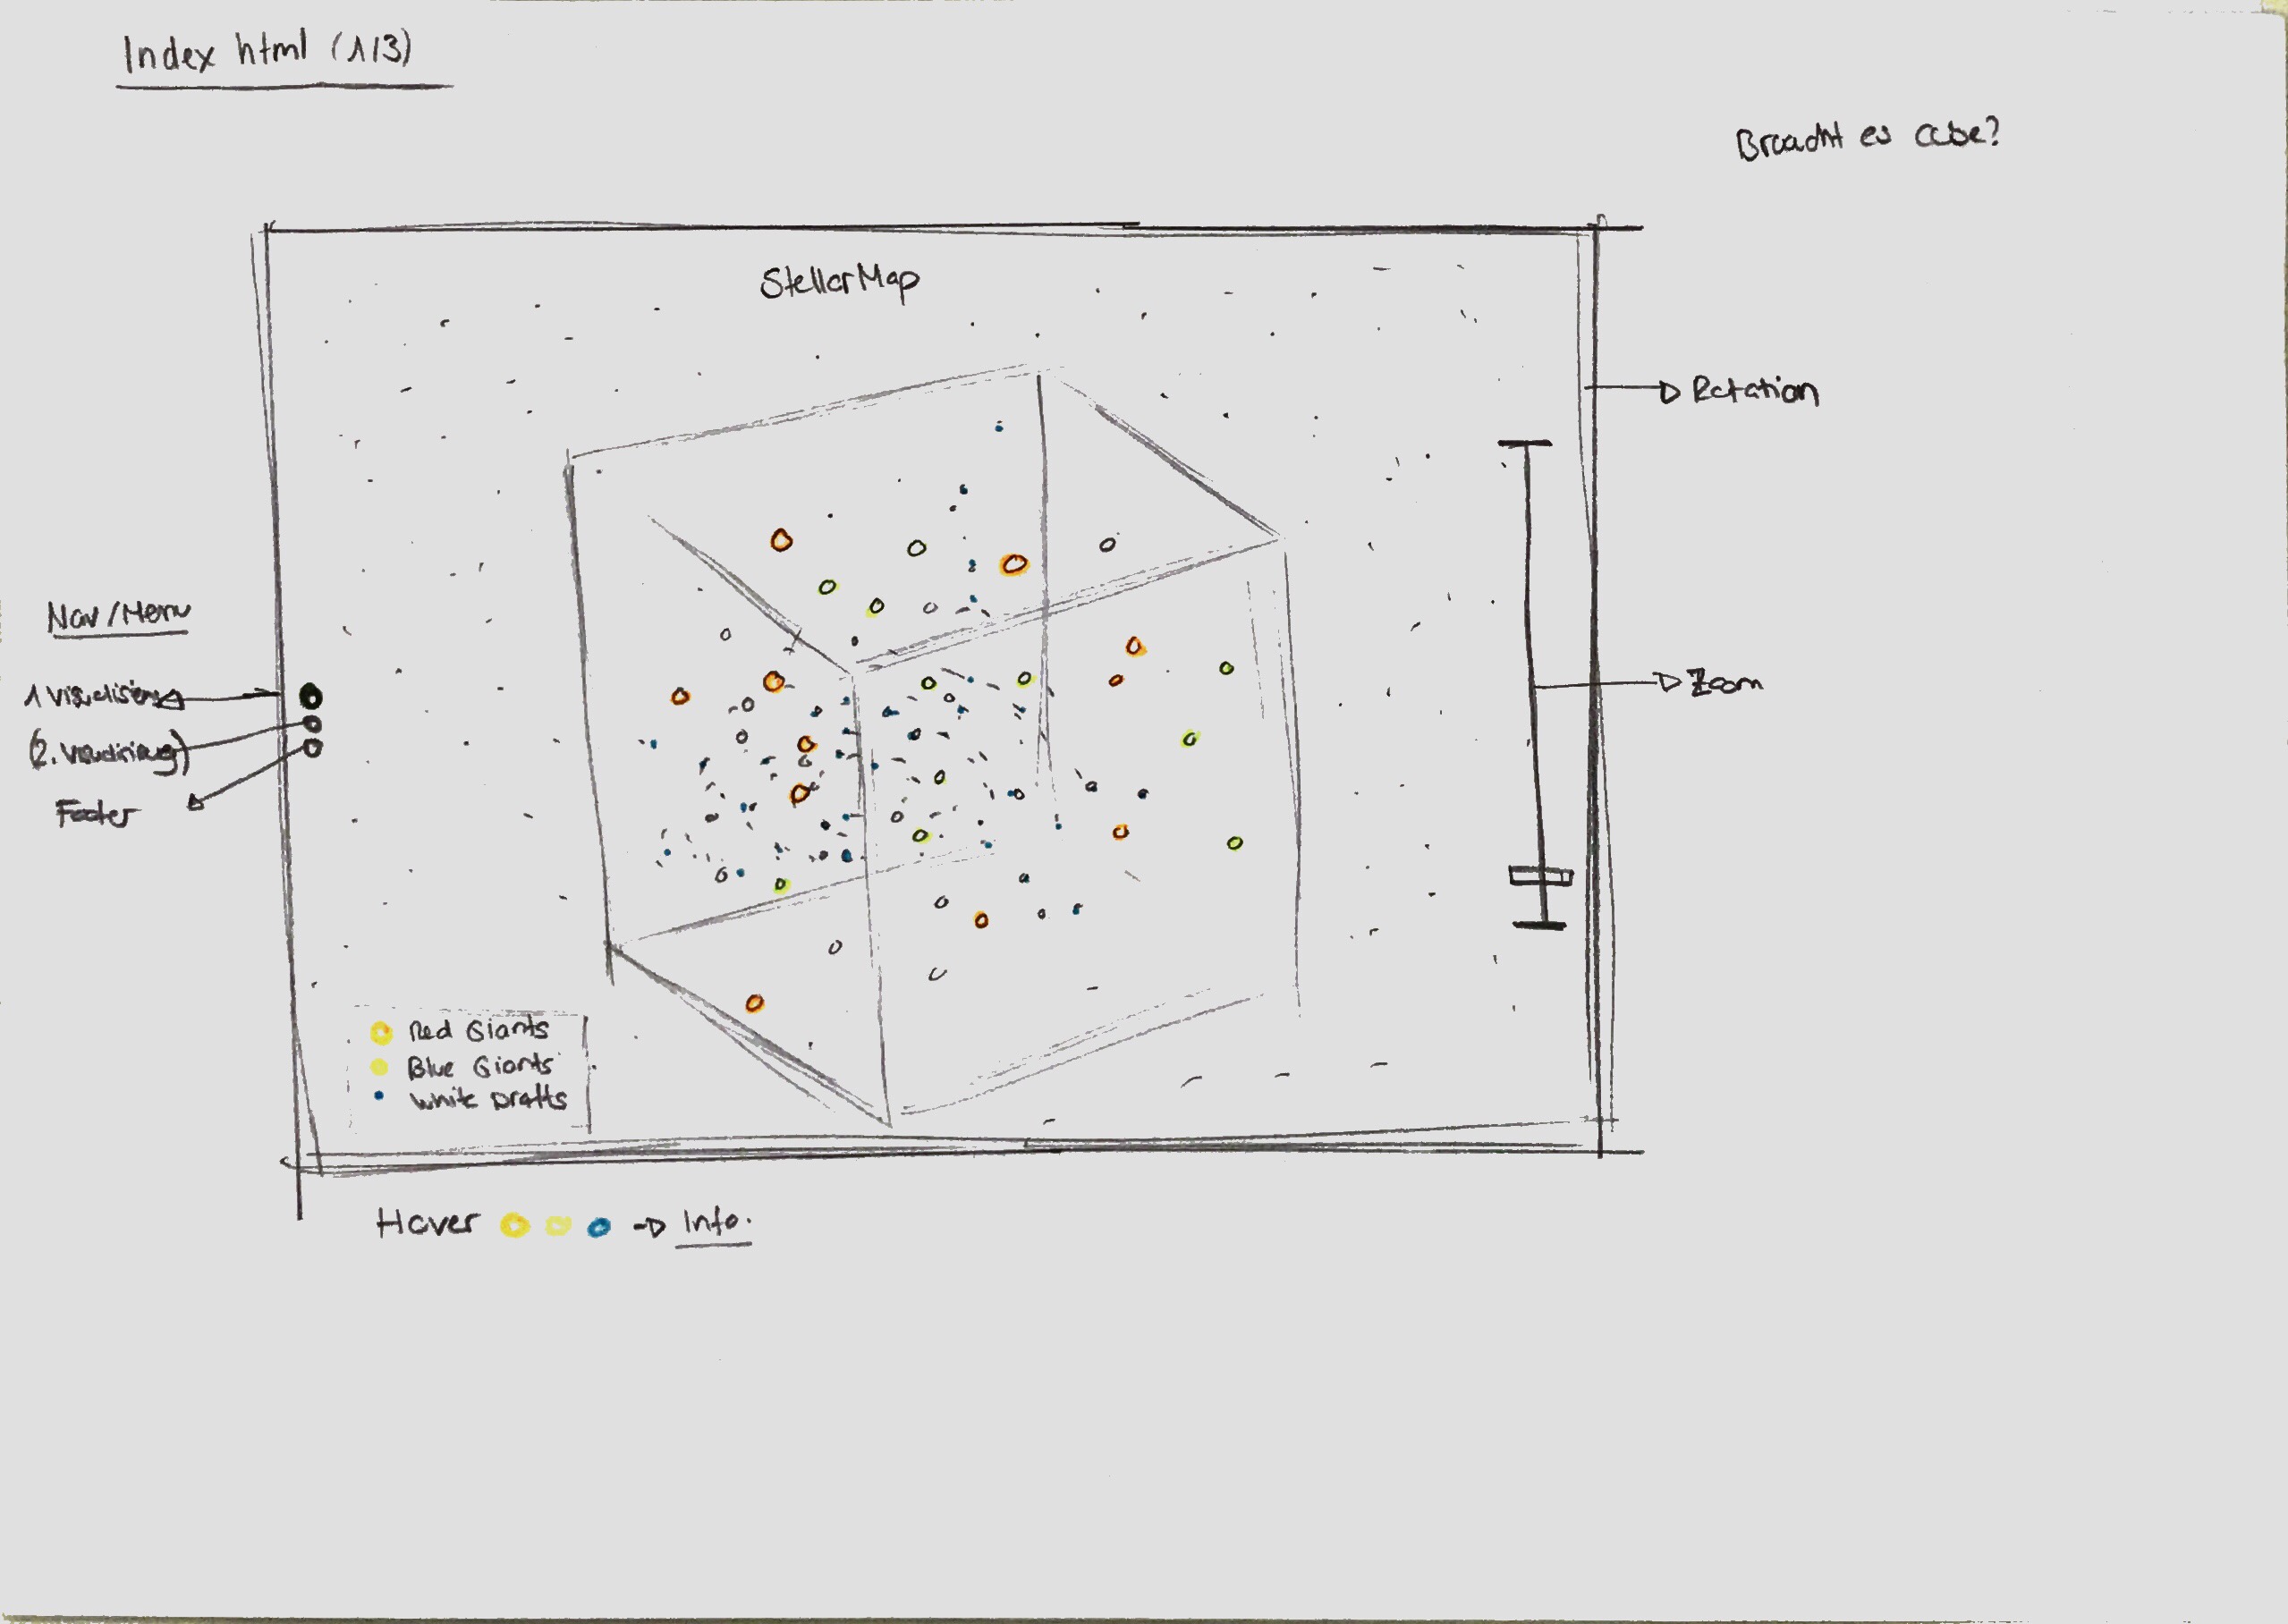 Index html (1/3)
Braucht es cube?
StellarMap
Rotation
Nav/Menu
1 Visualisierung
(2. Visualisierung)
Zoom
Footer
Red Giants
Blue Giants
White Drafts
Hover → Info.